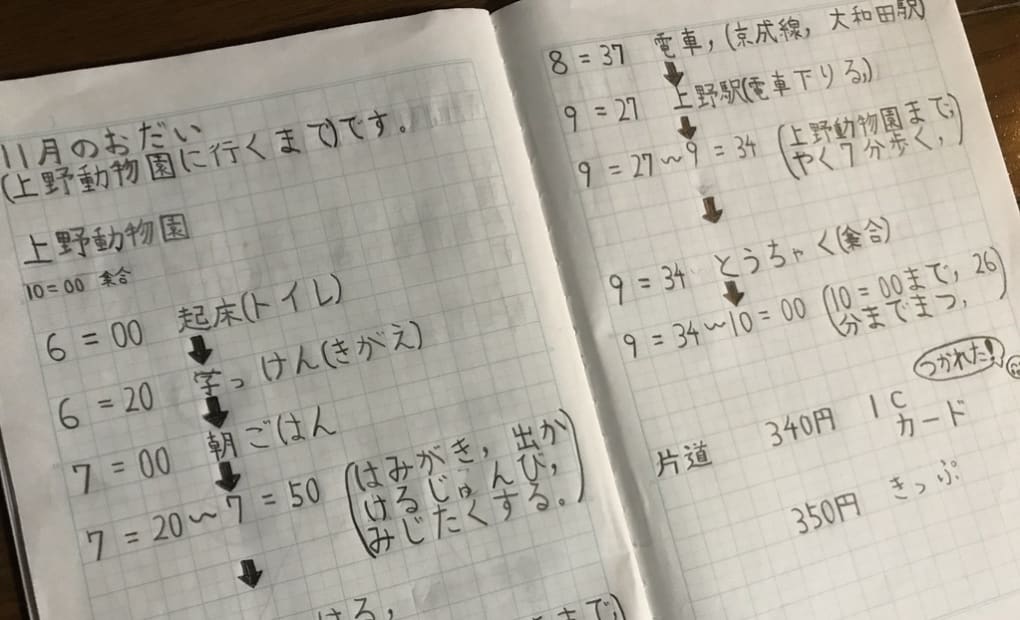 11月のおだい
(上野動物園に行くまで)です。
上野動物園
10=00 集合
6=00 起床(トイレ)
6=20 学っけん(きがえ)
7=00 朝ごはん
7=20〜7=50 (はみがき,出か
けるじゅんび,
みじたくする。)
ける,
まで,)
8=37 電車,(京成線,大和田駅)
9=27 上野駅(電車下りる,)
9=27〜9=34 (上野動物園まで,
やく7分歩く,)
9=34 とうちゃく(集合)
9=34〜10=00 (10=00まで,26
分までまつ,)
つかれた!
片道 340円 IC
カード
350円 きっぷ